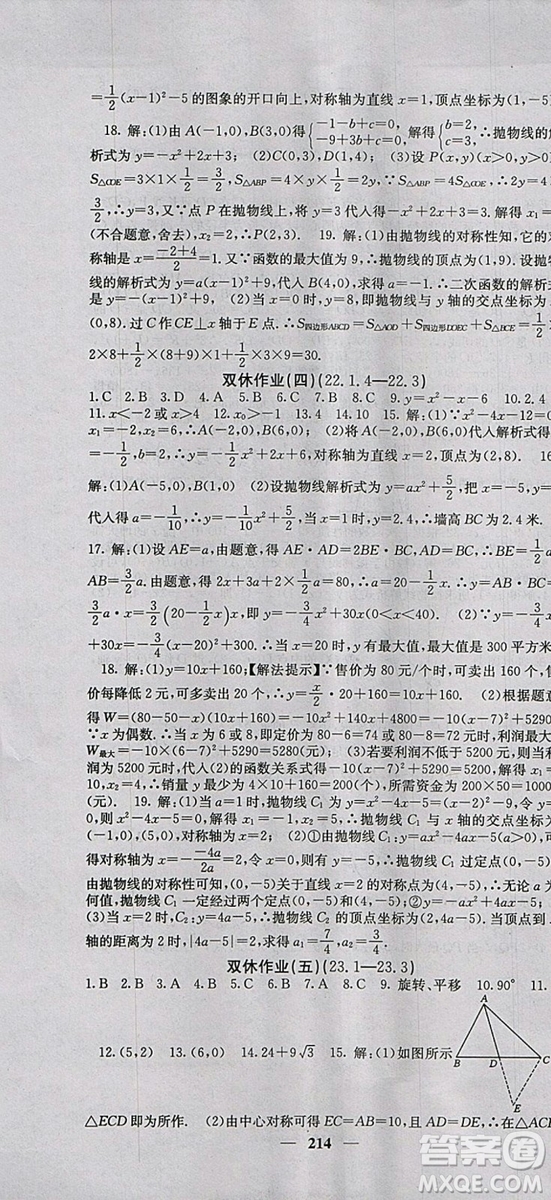 =1/2(x-1)²-5的图象的开口向上,对称轴为直线x=1,顶点坐标为(1,-5
18. 解:(1)由A(-1,0),B(3,0)得{-1-b+c=0, -9+3b+c=0, 解得{b=2, c=3,∴抛物线的解
析式为y=-x²+2x+3; (2)C(0,3),D(1,0); (3)设P(x,y)(x>0,y>
S△COE=3×1×1/2=3/2,S△ABP=4×y×1/2=2y,∵S△ABP=4S△COE,∴2y=4×
3/2,∴y=3,又∵点P在抛物线上,将y=3代入得-x²+2x+3=3,解得x₁=0
(不合题意,舍去),x₂=2,∴P(2,3). 19. 解:(1)由抛物线的对称性知,它的对
称轴是x=(-2+4)/2=1.又∵函数的最大值为9,∴抛物线的顶点为M(1,9).设抛物
线的解析式为y=a(x-1)²+9,代入B(4,0),求得a=-1.∴二次函数的解析
式是y=-(x-1)²+9,即y=-x²+2x+8;(2)当x=0时,y=8,即抛物线与y轴的交点坐标为
(0,8). 过C作CE⊥x轴于E点.∴S四边形ABCD=S△AOD+S四边形DOEC+S△
2×8×1/2+1/2×(8+9)×1+1/2×3×9=30.
双休作业(四)(22.1.4—22.3)
1.C 2.B 3.D 4.A 5.C 6.D 7.D 8.C 9.y=x²-x-6 10.
11.x<-2或x>8 12.k<4 13.0 14.10 15. 解:(1)∵x²-4x-12=
x₁=-2,x₂=6,∴A(-2,0),B(6,0);(2)将A,B两点坐标代入解析式得
y=-1/2x²+2x+6,∴抛物线对称轴为直线x=2,顶点坐标为(2,8). 16
解:(1)A(-5,0),B(0,5/2);(2)设抛物线解析式为y=ax²+5/2,把
代入得a=-1/10,∴y=-1/10x²+5/2,当x=1时,y=2.4,∴墙高BC为2.4米.
17. 解:(1)设AE=a,由题意,得AE·AD=2BE·BC,AD=BC,∴BE=1/2
AB=3/2a.由题意,得2x+3a+2×1/2a=80,∴a=20-1/2x,∴y=AB·BC
3/2a·x=3/2(20-1/2x)x,即y=-3/4x²+30x(0<x<40); (2)∵y=-3/4x²
+30x=-3/4(x-20)²+300,∴当x=20时,y有最大值,最大值是300平方米
18. 解:(1)y=10x+160;【解法提示】∵售价为80元/个时,可卖出160个,
价每降低2元,可多卖出20个,∴y=x/2·20+160=10x+160. (2)根据题意
得W=(80-50-x)(10x+160)=-10x²+140x+4800=-10(x-7)²+5290
∵x为偶数,∴当销售单价降低6元或8元时,即售价为74元或72元时,利润最大
W最大=-10×(6-7)²+5290=5280(元); (3)若要获得利润不低于5200元,当利
润为5200元时,代入(2)的函数关系式得-10(x-7)²+5290=5200,解得x₁=
10,x₂=4.∴销量至少为10×4+160=200(个),所需资金为200×50=10000
(元). 19. 解:(1)当a=1时,抛物线C₁为y=x²-4x-5,令y=0,则x²-4x
=0,解得x₁=-1,x₂=5,∴抛物线C₁与x轴的交点坐标为(-1,0),(5,0);
得对称轴x=-(-4a)/(2a)=2,令x=0,∴y=-5,∴抛物线C₁过定点(0,-5),
由抛物线的对称性可知,(0,-5)关于直线x=2的对称点为(4,-5),∴无论a为
何值,抛物线C₁一定经过两个定点(0,-5)和(4,-5);②∵抛物线C₁沿y=-5
折,得到C₂:y=-ax²+4ax-5,∴C₂的顶点坐标为(2,4a-5).当其顶点到x
轴的距离为2时,|4a-5|=2,解得a=7/4或3/4.
双休作业(五)(23.1—23.3)
1.B 2.D 3.A 4.D 5.C 6.B 7.A 8.C 9.旋转、平移 10.90° 11.
12.(5,2) 13.(6,0) 14.24+9√3 15. 解:(1)如图所示
A
B D C
E
△ECD即为所作. (2)由中心对称可得EC=AB=10,AD=DE,∴在△ACE
214
答案圈
MXQE.COM